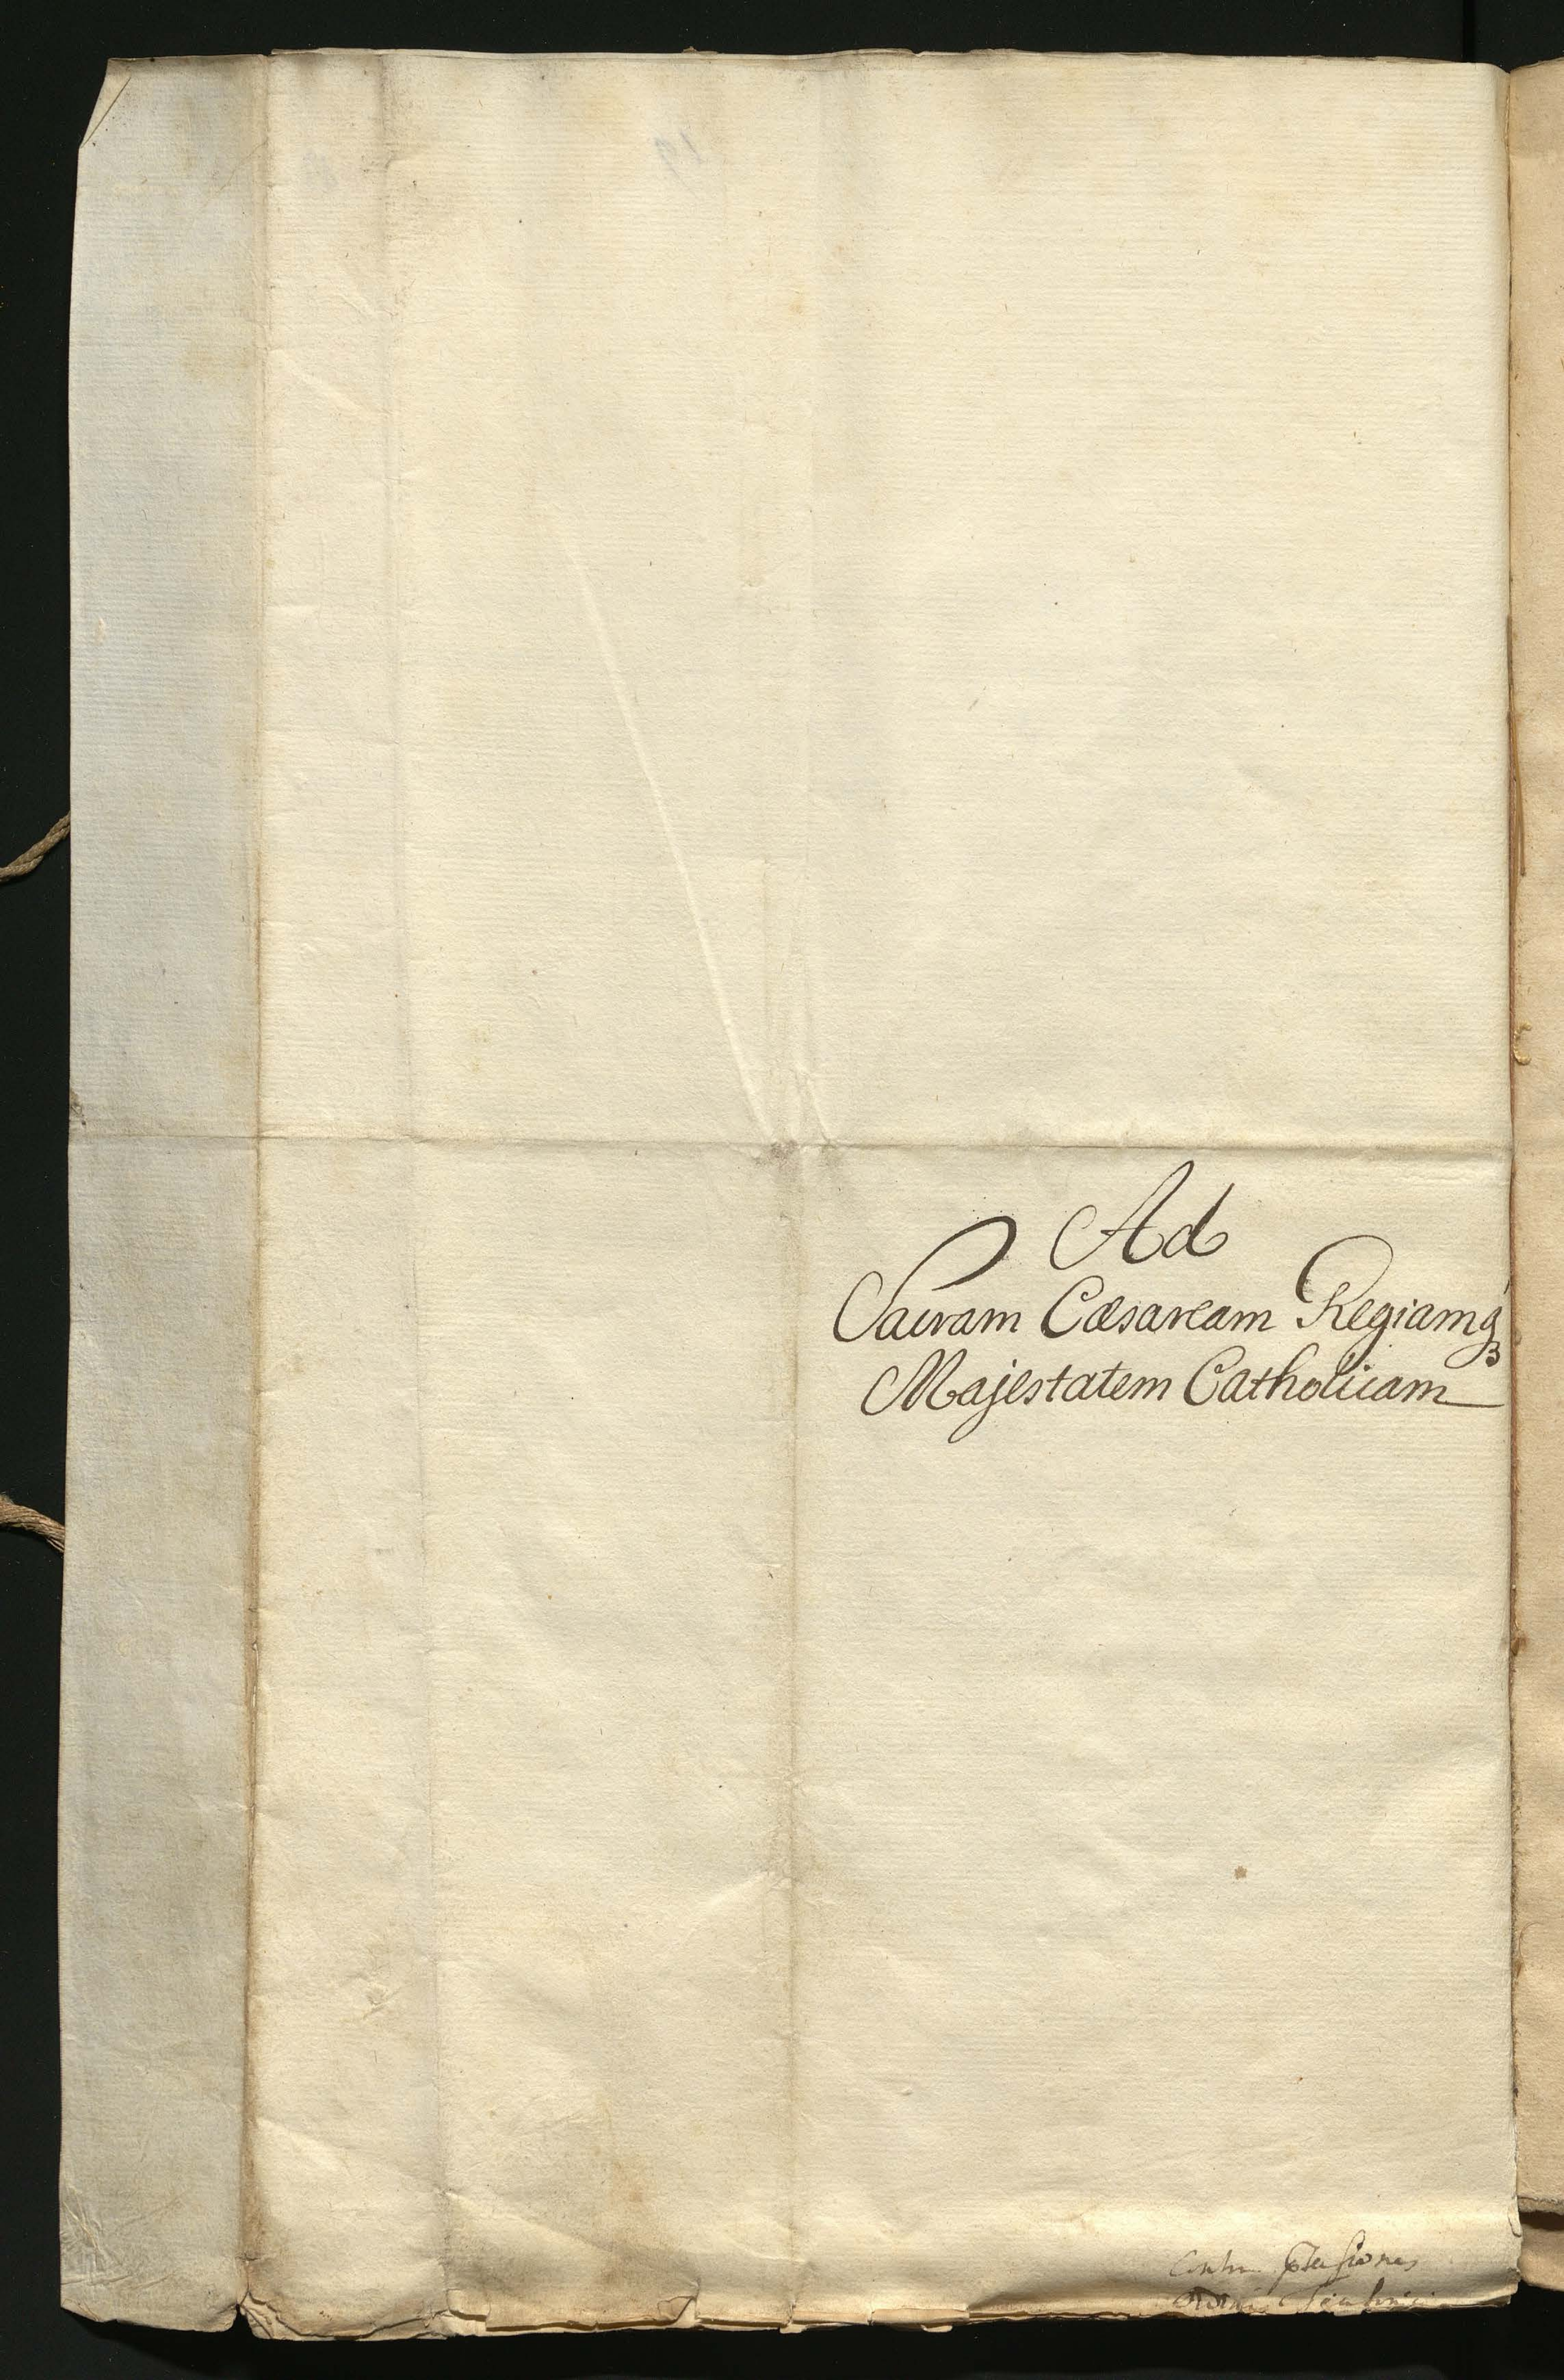 Ad
Sacram Cæsaream Regiamq́ꝫ
Majestatem Catholicam
Contra